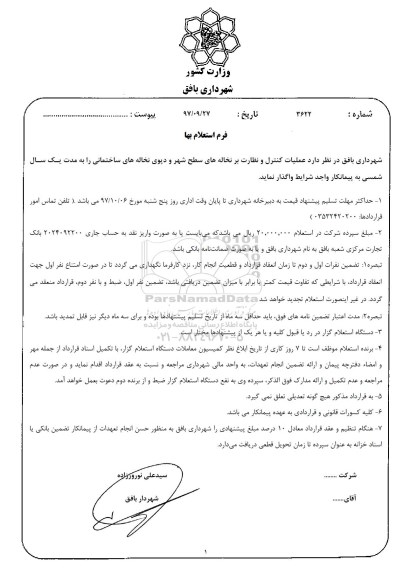 وزارت کشور
شهرداری بافق
شماره : ۳۶۲۲ تاریخ : ۹۷/۰۹/۲۷ پیوست :
فرم استعلام بها
شهرداری بافق در نظر دارد عملیات کنترل و نظارت بر نخاله های سطح شهر و دپوی نخاله های ساختمانی را به مدت یک سال
شمسی به پیمانکار واجد شرایط واگذار نماید.
۱- حداکثر مهلت تسلیم پیشنهاد قیمت به دبیرخانه شهرداری تا پایان وقت اداری روز پنج شنبه مورخ ۹۷/۱۰/۰۶ می باشد. ( تلفن تماس امور
قراردادها: ۰۳۵۳۲۴۲۰۲۰۰ )
۲- مبلغ سپرده شرکت در استعلام ۲۰,۰۰۰,۰۰۰ ریال می باشد که می‌بایست یا به صورت واریز نقد به حساب جاری ۲۰۲۴۰۹۲۲۰۰ بانک
تجارت مرکزی شعبه بافق به نام شهرداری بافق و یا به صورت ضمانتنامه بانکی باشد.
تبصره۱: تضمین نفرات اول و دوم تا زمان انعقاد قرارداد و قطعیت انجام کار، نزد کارفرما نگهداری می گردد تا در صورت امتناع نفر اول جهت
انعقاد قرارداد، با شرایطی که تفاوت قیمت کمتر یا برابر با میزان تضمین دریافتی باشد، تضمین نفر اول، ضبط و با نفر دوم، قرارداد منعقد می
گردد. در غیر اینصورت استعلام تجدید خواهد شد.
تبصره۲: مدت اعتبار تضمین نامه های فوق، باید حداقل سه ماه از تاریخ تسلیم پیشنهادها بوده و برای سه ماه دیگر نیز قابل تمدید باشد.
۳- دستگاه استعلام گزار در رد یا قبول کلیه و یا هر یک از پیشنهادها مختار است.
۴- برنده استعلام موظف است تا ۷ روز کاری از تاریخ ابلاغ نظر کمیسیون معاملات دستگاه استعلام گزار، با تکمیل اسناد قرارداد از جمله مهر
و امضاء دفترچه پیمان و ارائه تضمین انجام تعهدات، به واحد مالی شهرداری مراجعه و نسبت به عقد قرارداد اقدام نماید و در صورت عدم
مراجعه و عدم تکمیل و ارائه مدارک فوق الذکر، سپرده وی به نفع دستگاه استعلام گزار ضبط و از برنده دوم دعوت بعمل خواهد آمد.
۵- به قرارداد مذکور هیچ گونه تعدیلی تعلق نمی گیرد.
۶- کلیه کسورات قانونی و قراردادی به عهده پیمانکار می باشد.
۷- هنگام تنظیم و عقد قرارداد معادل ۱۰ درصد مبلغ پیشنهادی را شهرداری بافق به منظور حسن انجام تعهدات از پیمانکار تضمین بانکی یا
اسناد خزانه به عنوان سپرده تا زمان تحویل قطعی دریافت می‌دارد.
شرکت ........ سیدعلی نوروززاده
آقای..... شهردار بافق
۱